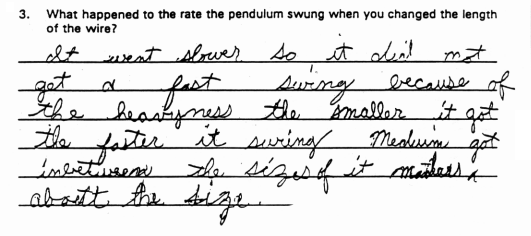 3. What happened to the rate the pendulum swung when you changed the length
of the wire?
It went slower so it did not
get a fast swing because of
the heavyness the smaller it got
the faster it swring Medium got
inbetween the sizes of it matters
aboutt the size.